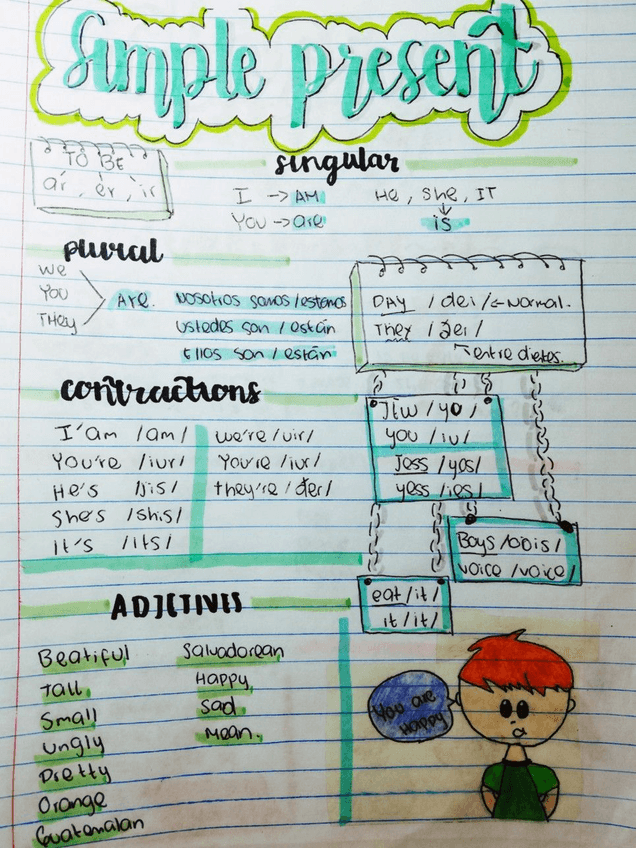 Simple present
TO BE
ar, er, ir
singular
I -> AM
You -> are
He, She, IT
is
plural
We
You
They
Are.
Nosotros somos / estamos
Ustedes son / están
Ellos son / están
DAY / dei / <- Normal.
They / ðei /
entre dietes.
contractions
I'am /am/
You're /iur/
He's /jis/
She's /shis/
It's /its/
we're /uir/
You're /iur/
they're / der/
Jew / yo /
you / iu/
Jess / yes/
yess / ies/
Boys /bois/
voice /voice/
eat /it/
it /it/
ADJETIVES
Beatiful
Tall
Small
Ungly
Pretty
Orange
Guatemalan
Salvadorean
Happy
Sad
Mean.
You are
Happy